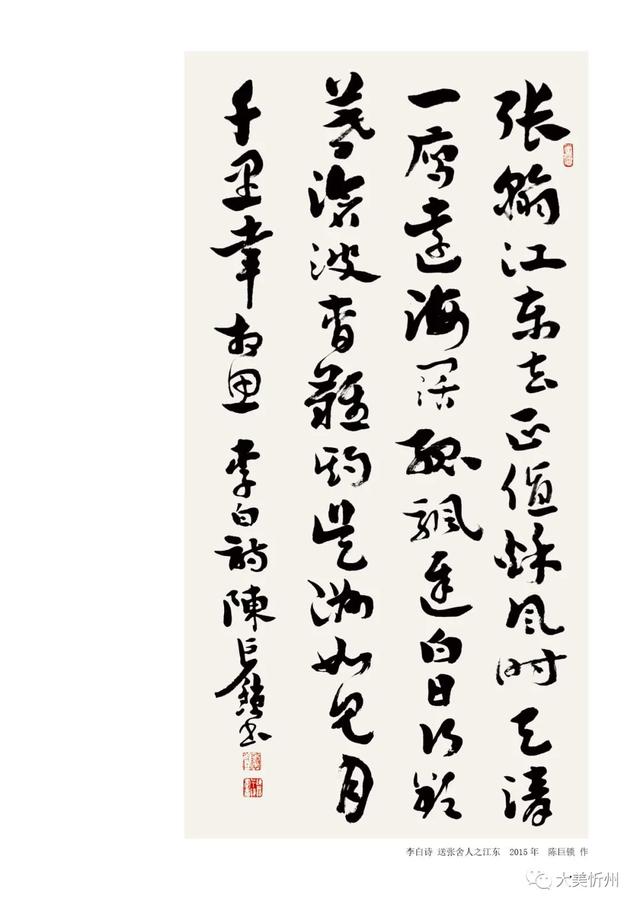 張翰江东去正值秋风时天清
一雁遠海闊孤颿遲白日行欲
暮滄波杳難期吴洲如見月
千里幸相思 李白詩陳巨鎖书
李白诗 送张舍人之江东 2015 年 陈巨锁 作
大美忻州